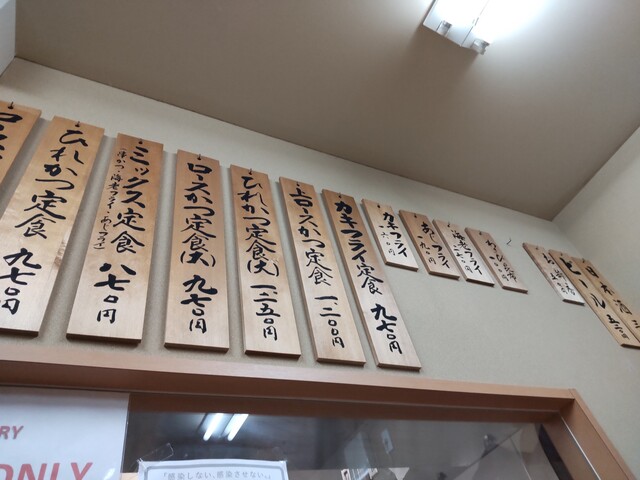 ロース
ひれかつ定食 九七〇円
ミックス定食 八七〇円
(串かつ・海老フライ・あじフライ)
ロースかつ定食(大) 九七〇円
ひれかつ定食(大) 一二五〇円
上ロースかつ定食 一二〇〇円
カキフライ定食 九七〇円
カキフライ
あじフライ
海老フライ
ビール 五
日本酒
RY
ONLY
「感染しない、感染させない。」